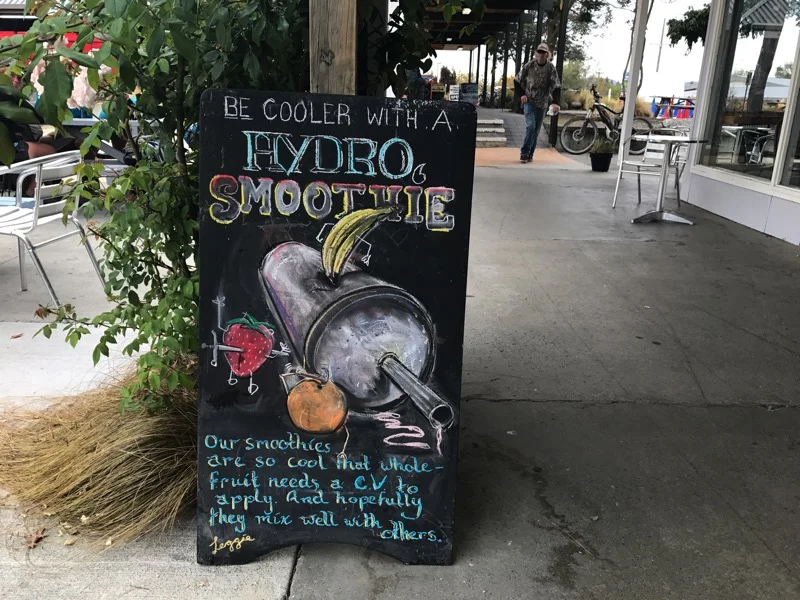 BE COOLER WITH A
HYDRO
SMOOTHIE
Our smoothies
are so cool that whole-
fruit needs a C.V to
apply. And hopefully
they mix well with
others.
Leggie